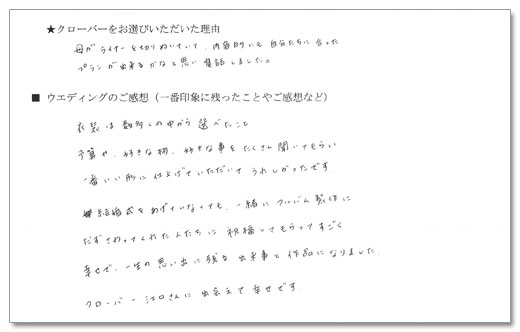 ★クローバーをお選びいただいた理由
母がライナーを切りぬいていて、内容的にも自分たちに合った
プランが出来るかなと思い電話しました。
■ ウエディングのご感想（一番印象に残ったことやご感想など）
衣裳は数多くの中から選べたこと
予算や、好きな物、好きな事をたくさん聞いてもらい
一番いい形に仕上げていただいてうれしかったです
結婚式をあげていなくても、一緒にアルバム製作に
たずさわってくれた人たちに祝福してもらってすごく
幸せで、一生の思い出に残る出来事と作品になりました。
クローバー江口さんに出会えて幸せです。